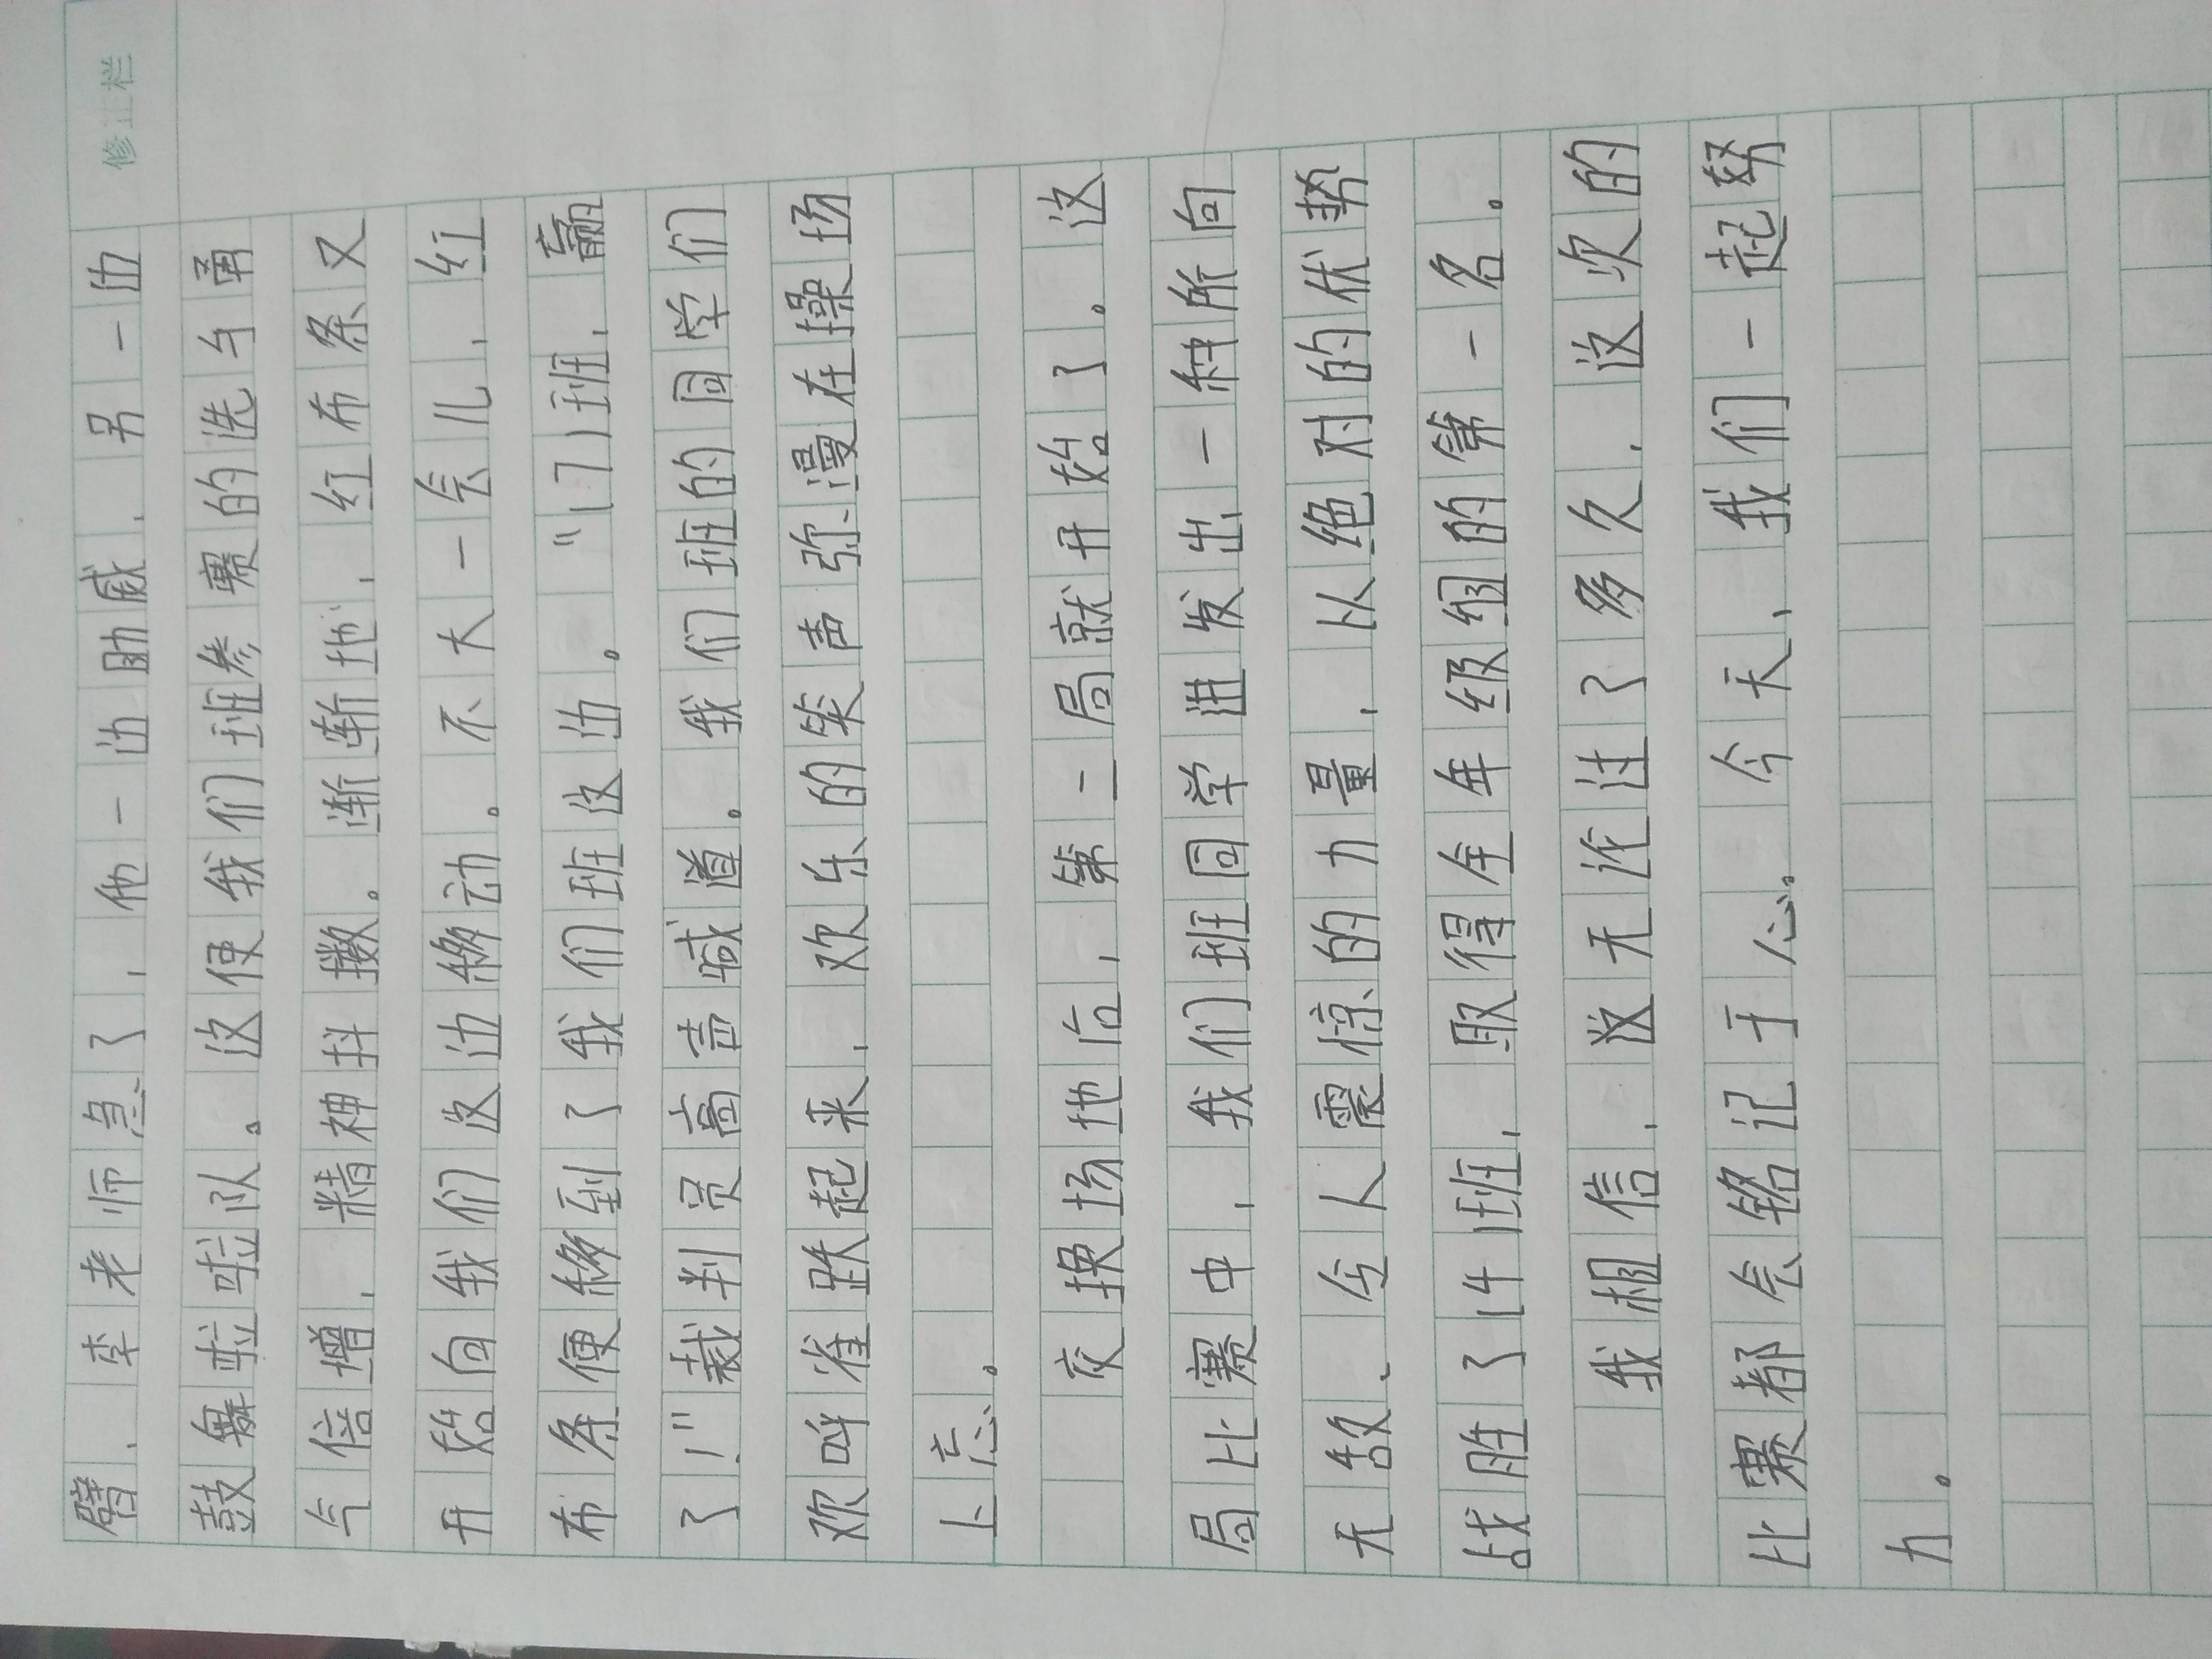 修正栏
臂,李老师急了,他一边助威,另一边
鼓舞啦啦队。这使我们班参赛的选手勇
气倍增,精神抖擞。渐渐地,红布条又
开始向我们这边移动。不大一会儿,红
布条便移到了我们班这边。“(7)班,赢
了!”裁判员高声喊道。我们班的同学们
欢呼雀跃起来,欢乐的笑声弥漫在操场
上忘。
交换场地后,第二局就开始了。这
局比赛中,我们班同学迸发出一种所向
无敌、令人震惊的力量,以绝对的优势
战胜了(4)班,取得全年级组的第一名。
我相信,这无论过了多久,这次的
比赛都会铭记于心。今天,我们一起努
力。